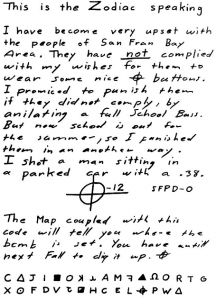 This is the Zodiac speaking
I have become very upset with
the people of San Fran Bay
Area. They have not complied
with my wishes for them to
wear some nice ⌖ buttons.
I promiced to punish them
if they did not comply, by
anilating a full School Buss.
But now school is out for
the summer, so I punished
them in an another way.
I shot a man sitting in
a parked car with a .38.
⌖-12 SFPD-0
The Map coupled with this
code will tell you where the
bomb is set. You have untill
next Fall to dig it up. ⌖
C Δ J I ■ O A M Ω O R T G
X ⊙ F D V H C E L ⌖ P W Δ